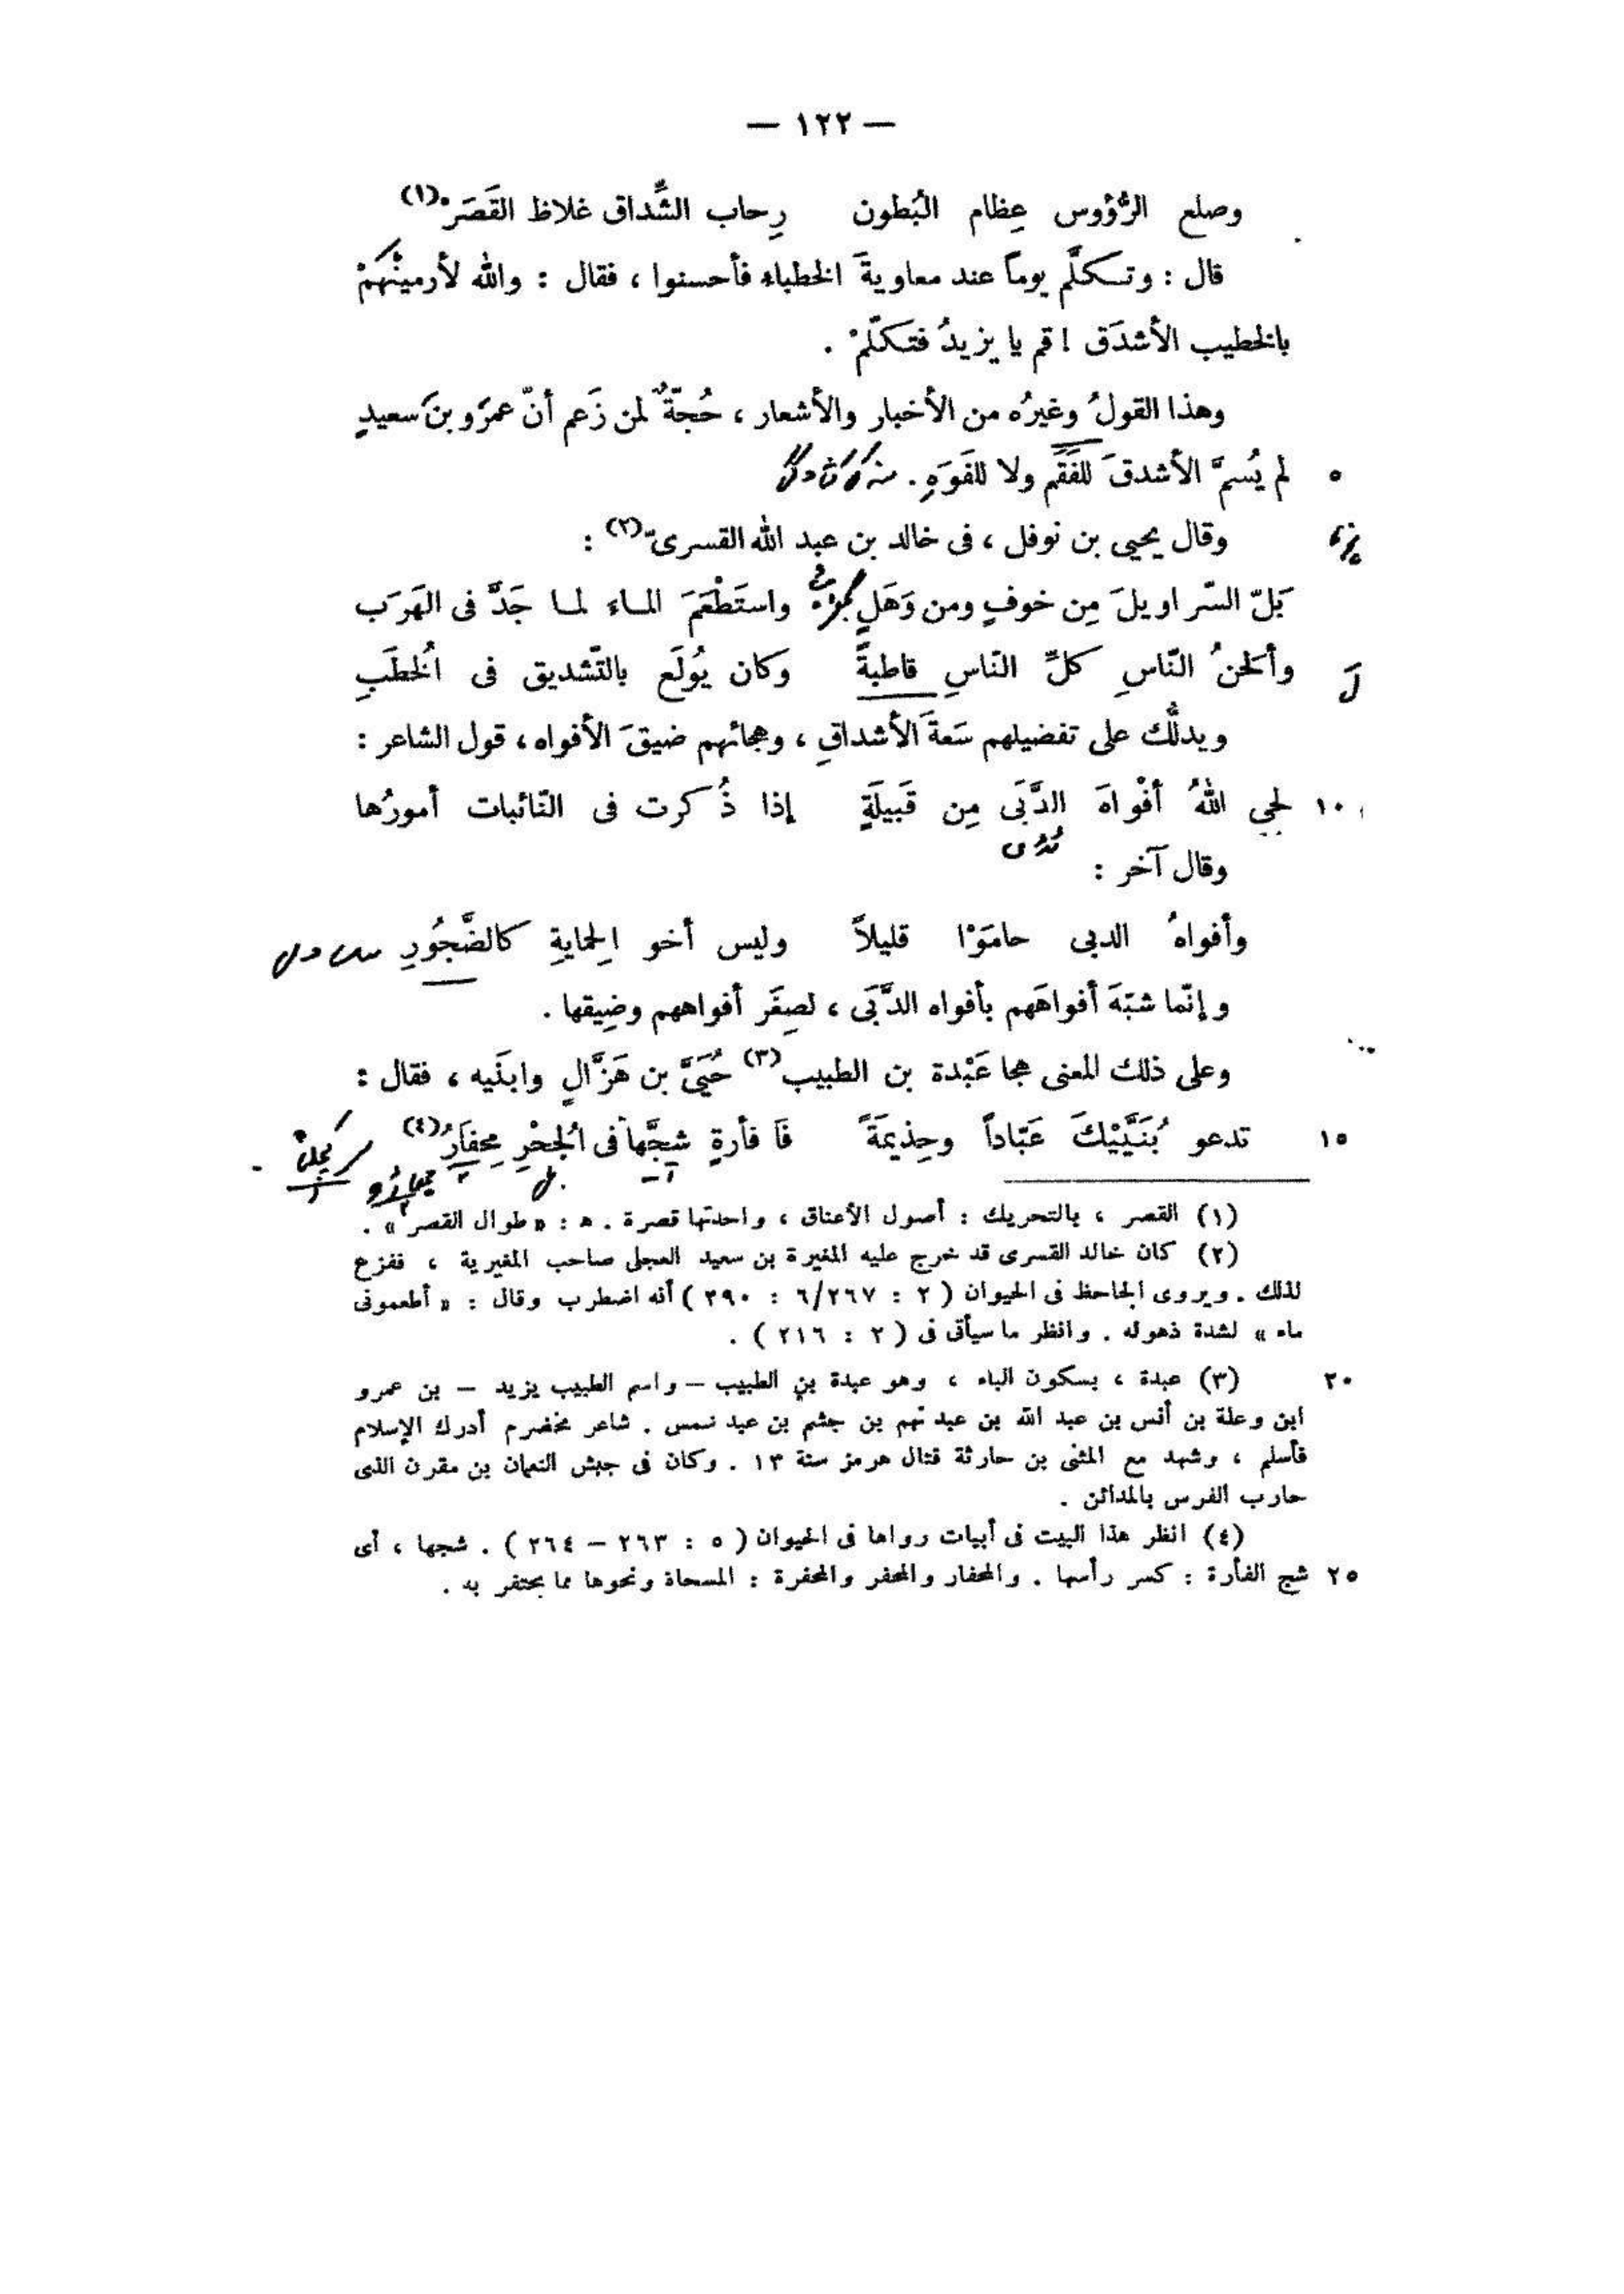 — ١٢٢ —
وصلع الرُّؤوس عِظام البُطون رِحاب الشِّداق غلاظ القَصَرْ(١)
قال : وتكلَّم يوماً عند معاويةَ الخطباء فأحسنوا ، فقال : والله لأرمينَّهمْ
بالخطيب الأشدَق ! قم يا يزيدُ فتكلّمْ .
وهذا القولُ وغيرُه من الأخبار والأشعار ، حُجّةٌ لمن زَعم أنّ عمرَو بنَ سعيدٍ
٥ لم يُسمَّ الأشدقَ للفَقَم ولا للفَوَهِ .
وقال يحيى بن نوفل ، فى خالد بن عبد الله القسرىّ(٢) :
بَلّ السّراويلَ مِن خوفٍ ومن وَهَلٍ واستَطْعَمَ الماء لما جَدَّ فى الهَرَب
وألحنُ النّاسِ كلِّ النّاسِ قاطبةً وكان يُولَع بالتّشديق فى الخُطَبِ
ويدلُّك على تفضيلهم سَعةَ الأشداقِ ، وهجائهم ضيقَ الأفواه ، قول الشاعر :
١٠ لحى اللهُ أفْواهَ الدَّبَى مِن قَبيلَةٍ إذا ذُكرت فى النّائبات أمورُها
وقال آخر :
وأفواهُ الدبى حامَوْا قليلاً وليس أخو الِحمايةِ كالضَّجُورِ
وإنّما شبّهَ أفواهَهم بأفواه الدَّبَى ، لصِغَر أفواههم وضِيقها .
وعلى ذلك المعنى هجا عَبْدة بن الطبيب(٣) حُيَىَّ بن هَزَّالٍ وابنَيه ، فقال :
١٥ تدعو بُنَيَّيْكَ عَبّاداً وحِذيمَةً فَا فأرةٍ شجَّها فى الُجحْرِ مِحفارُ(٤)
(١) القصر ، بالتحريك : أصول الأعناق ، واحدتها قصرة . ه : « طوال القصر » .
(٢) كان خالد القسرى قد خرج عليه المغيرة بن سعيد العجلى صاحب المغيرية ، ففزع
لذلك . ويروى الجاحظ فى الحيوان ( ٢ : ٢٦٧/٦ : ٣٩٠ ) أنه اضطرب وقال : « أطعمونى
ماء » لشدة ذهوله . وانظر ما سيأتى فى ( ٢ : ٢١٦ ) .
٢٠ (٣) عبدة ، بسكون الباء ، وهو عبدة بن الطبيب – واسم الطبيب يزيد – بن عمرو
ابن وعلة بن أنس بن عبد الله بن عبد نهم بن جشم بن عبد شمس . شاعر مخضرم أدرك الإسلام
فأسلم ، وشهد مع المثنى بن حارثة قتال هرمز سنة ١٣ . وكان فى جيش النعمان بن مقرن الذى
حارب الفرس بالمدائن .
(٤) انظر هذا البيت فى أبيات رواها فى الحيوان ( ٥ : ٢٦٣ – ٢٦٤ ) . شجها ، أى
٢٥ شج الفأرة : كسر رأسها . والمحفار والمحفر والمحفرة : المسحاة ونحوها مما يحتفر به .